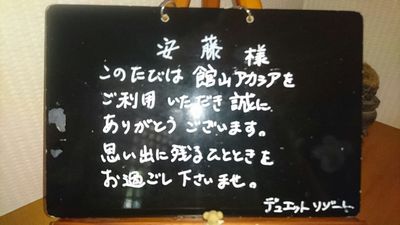 安藤様
このたびは館山アカシアを
ご利用いただき誠に
ありがとうございます。
思い出に残るひとときを
お過ごし下さいませ。
デュエットリゾート